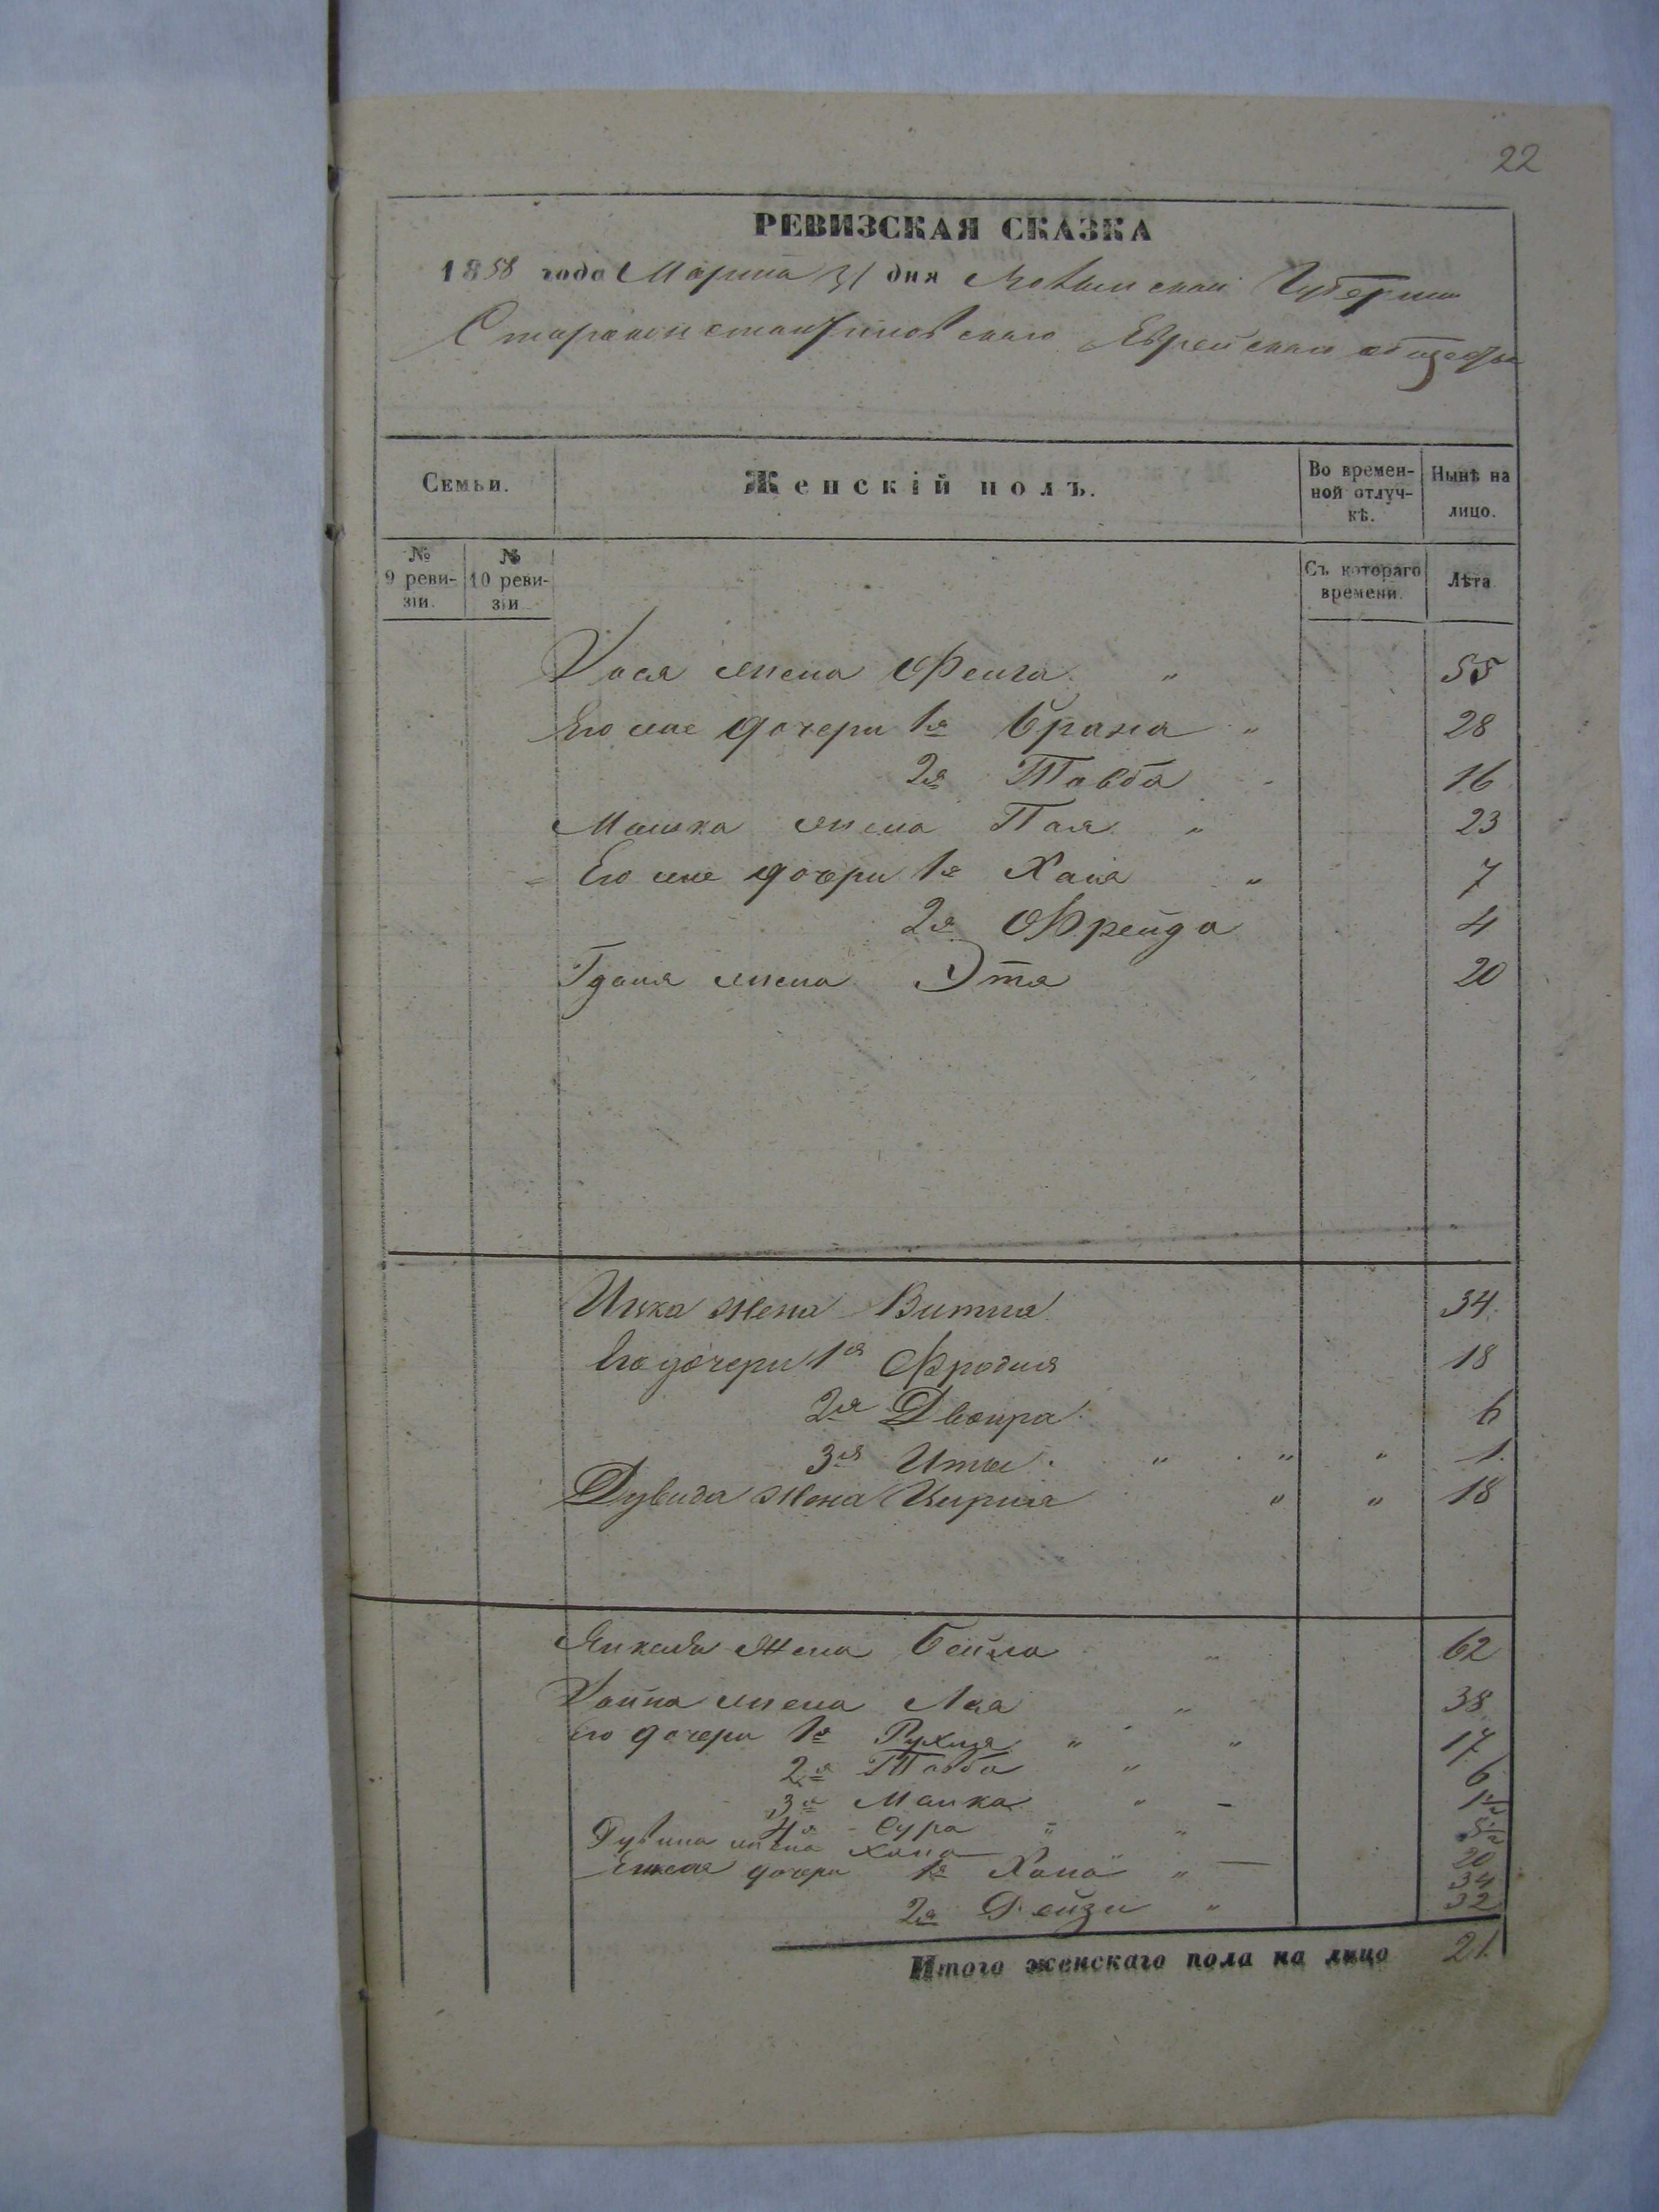 22
РЕВИЗСКАЯ СКАЗКА
1858 года Марта 31 дня Волынской Губернии
Староконстантиновскаго Еврейскаго общества
Семьи. Женскій полъ. Во временной отлучкѣ. Нынѣ на лицо.
№ 9 ревизіи. № 10 ревизіи Съ котораго времени. Лѣта
Іося жена Фейга " 55
Его же дочери 1я Брана " 28
2я Товба 16
Мошка жена Пая " 23
Его же дочери 1я Хана " 7
2я Фрейда 4
жена Эта 20
Ицка жена Витля 34.
Его дочери 1я Фродля 18
2я Двойра 6
3я Ита " " " 1.
Дувида жена Цирля " " 18
Янкеля жена Бейла " 62
жена Лая " 38
Его дочери 1я Рухля " " 17
2я Товба " 6
3я Малка " - 1½
4я Сура " "
жена Хана 20
дочери 1я Хана " — 34
2я Рейзи " 32
Итого женскаго пола на лицо 21.